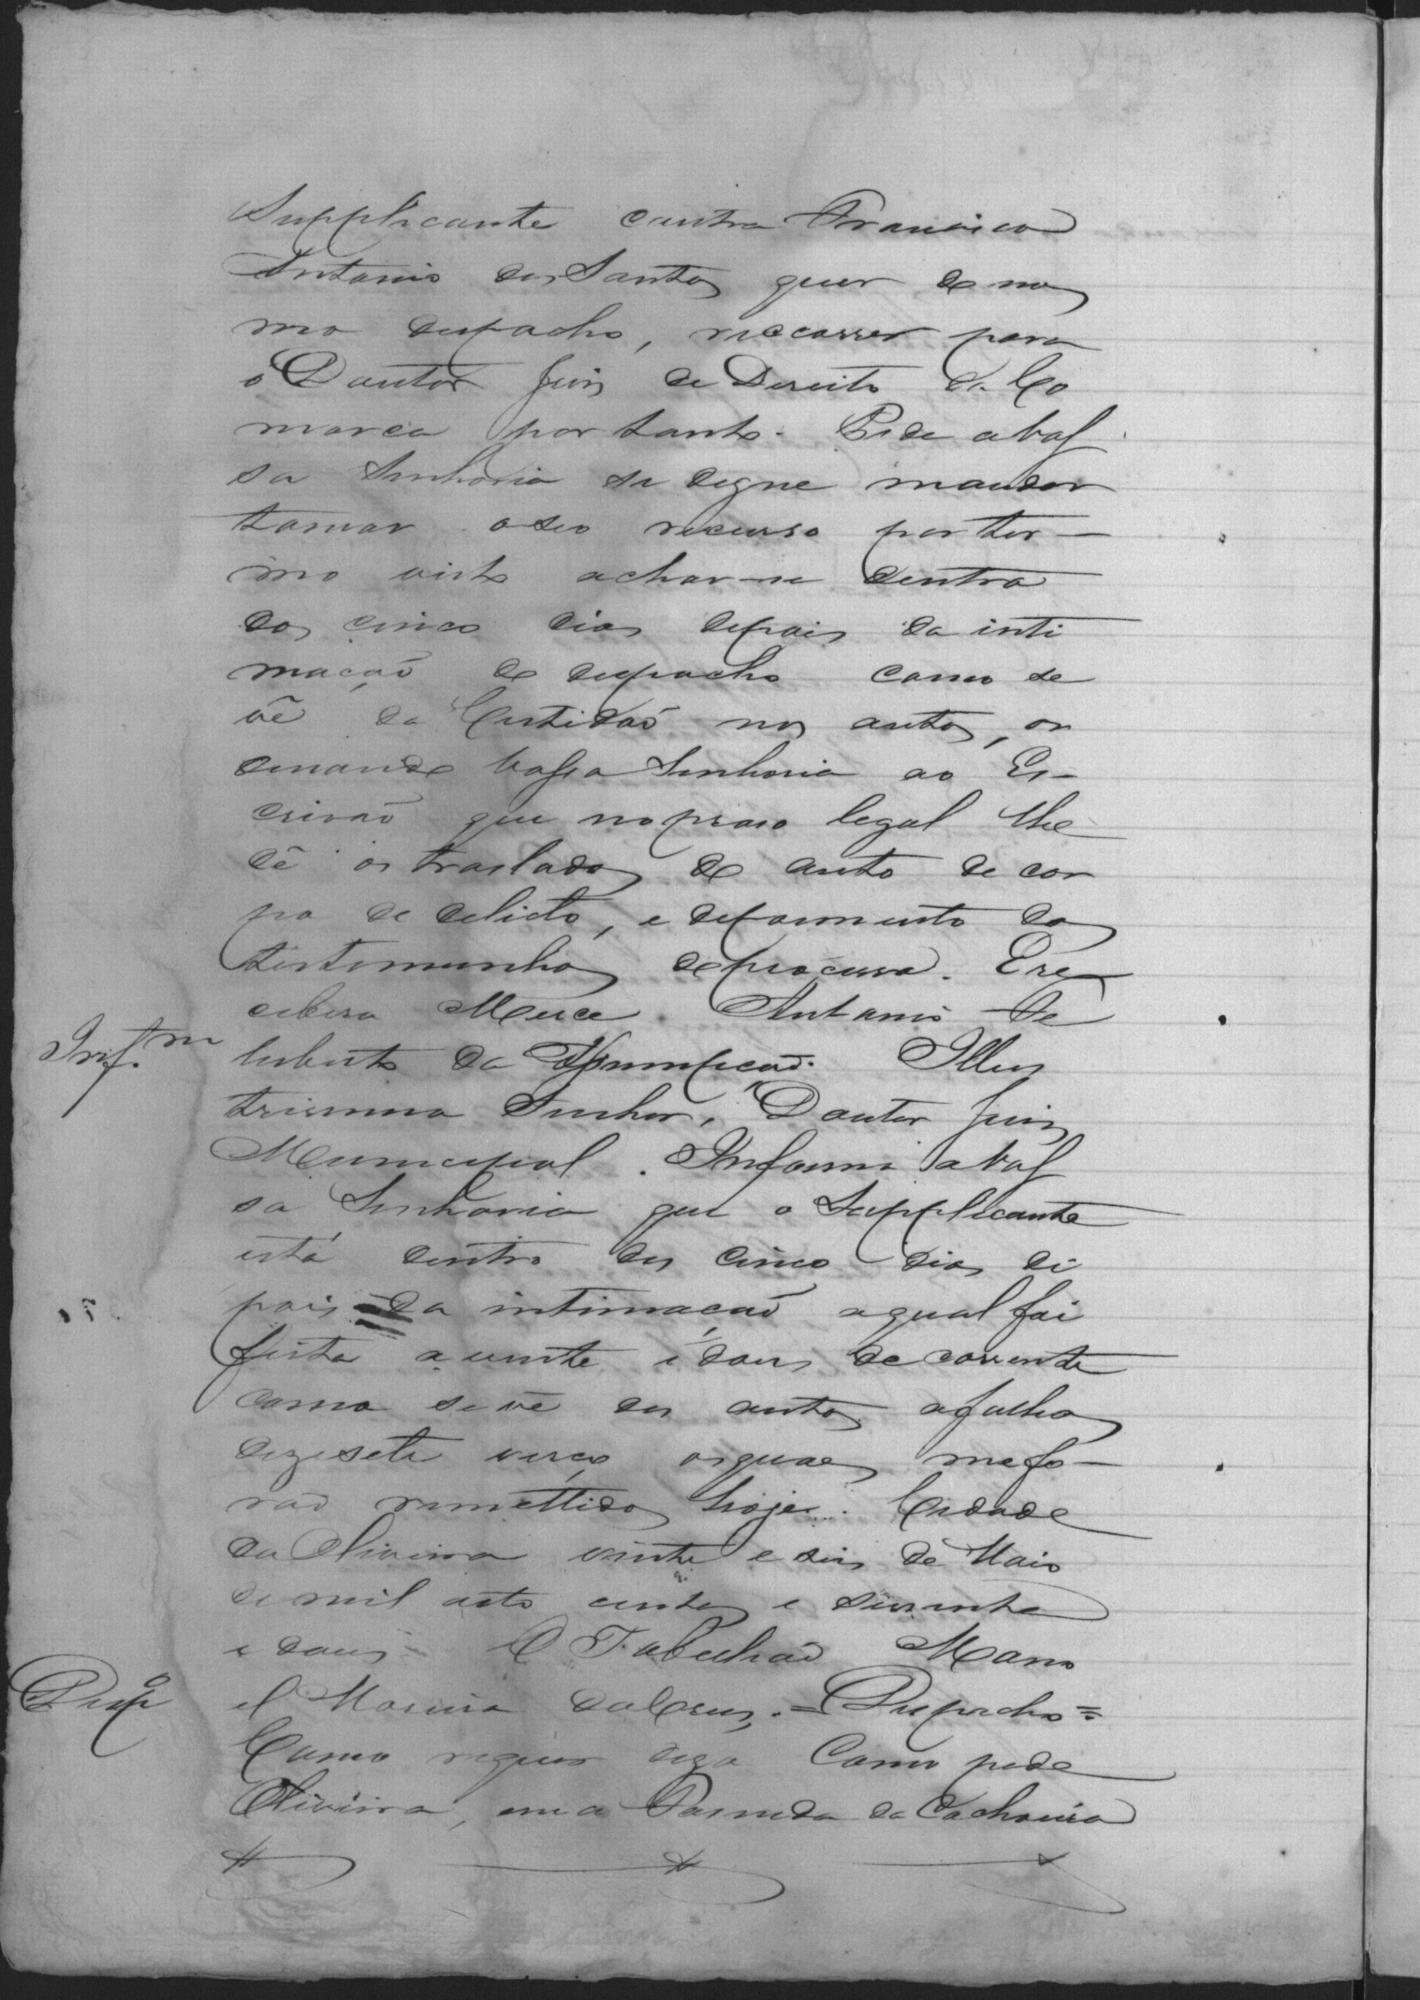 Supplicante contra Francisco
Antonio dos Santos quer do mes
mo despacho, reccorrer para
o Doutor Juis de Dereito da Co
marca por tanto. Pede a Vas
sa Senhoria se digne mandar
tomar o seo recurso por ter-
mo visto achar-se dentro
dos cinco dias depois da inti
mação do despacho como se
vê da Certidaõ nos autos, or
denando Vossa Senhoria ao Es-
crivaõ que no praso legal lhe
dê os traslados do auto de cor
po de delicto, e depoimento das
testemunhas do processo. E re
cebera Merce. Antonio Fe
lisberto da
Inf.m
Illus
trissimo Senhor, Doutor Juis
Municipal. Informo a Vos
sa Senhoria que o Supplicante
está dentro dos cinco dias di
pois da intimação a qual foi
feita a vinte e dous do corrente
como se vê dos autos a folhas
dezesete verço os quaes me fo-
raõ remettidos hoje. Cidade
da Oliveira vinte e seis de Maio
de mil oito centos e secenta
e dous. O Tabelliaõ Mano
el Moreira da Crus. = Despacho =
Desp.o
Como requer digo Como pede
Oliveira, em a Fasenda da Cachoeira